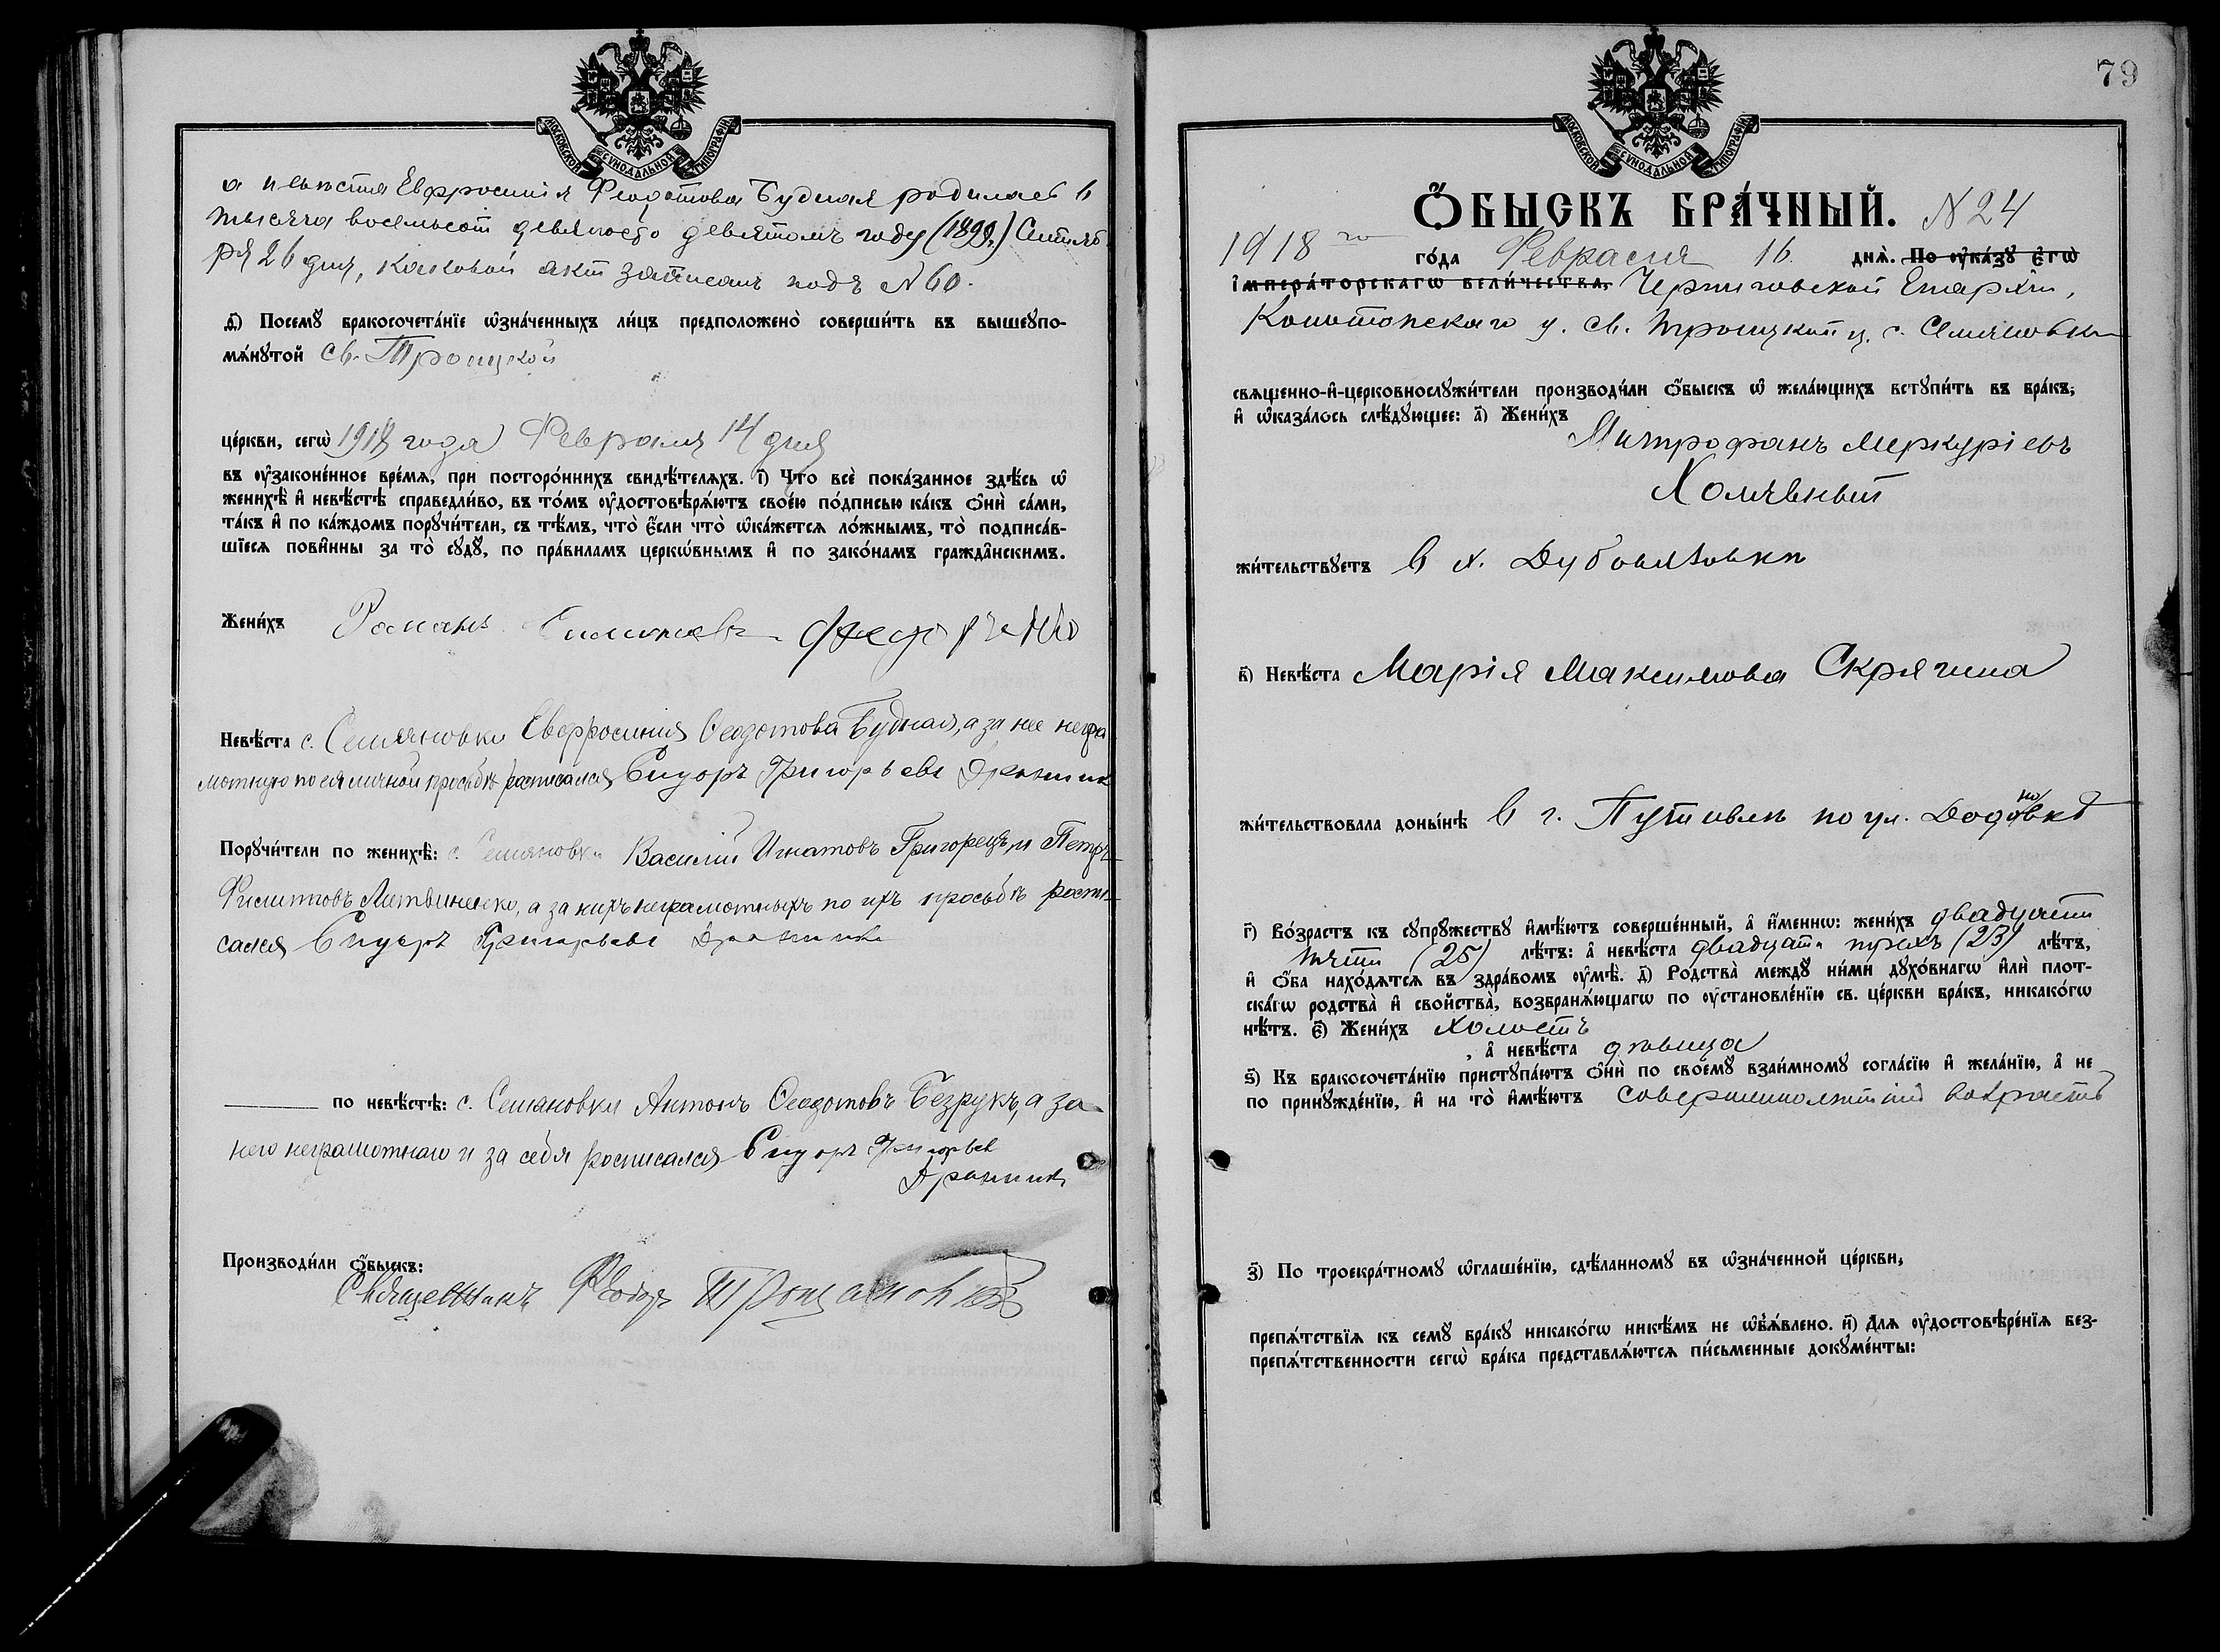 МОСКОВСКОЙ СѴНОДАЛЬНОЙ ТИПОГРАФІИ
а невѣста Евфросинія Феодотова Будная родилась в
тысяча восемьсот девяносто девятомъ году (1899.) Сентяб
ря 26 дня, каковой акт записанъ подъ №60.
д҃і) Посемꙋ̀ бракосочета́нїе ѡ҆зна́ченныхъ ли́цъ предположено̀ соверши́ть въ вышеупо-
мя́нꙋтой св. Троицкой
це́ркви, сегѡ̀ 1918 года Февраля 14 дня
въ ᲂу҆законе́нное вре́мѧ, при посторо́ннихъ свидѣ́телѧхъ. і҃) Что̀ всѐ пока́занное здѣ́сь ѡ҆
женихѣ̀ и҆ невѣ́стѣ справедли́во, въ то́мъ ᲂу҆достовѣрѧ́ютъ свое́ю по́дписью ка́къ ѻ҆нѝ са́ми,
та́къ и҆ по ка́ждомъ порꙋчи́тели, съ тѣ́мъ, что̀ є҆́сли что̀ ѡ҆ка́жетсѧ ло́жнымъ, то̀ подписа́в-
шїесѧ пови́нны за то̀ сꙋдꙋ̀, по пра́виламъ церкѡ́внымъ и҆ по зако́намъ гражда́нскимъ.
Жени́хъ Романъ Федорченко
Невѣ́ста с. Семяновки Евфросинія Феодотова Будная, а за нее негра
мотную по ея личной просьбѣ росписался Сидоръ Григорьевъ
Порꙋчи́тели по женихѣ̀: с. Семяновки Василій Игнатовъ Григорецъ, и Петръ
Филиповъ Литвиненко, а за нихъ неграмотныхъ по ихъ просьбѣ роспи-
сался Сидоръ Григорьевъ
по невѣ́стѣ: с. Семяновки Антонъ Феодотовъ Безрукъ, а за
него неграмотнаго и за себя росписался Сидоръ Григорьев
Производи́ли ѻ҆́быскъ:
Священникъ Феодоръ
79
МОСКОВСКОЙ СѴНОДАЛЬНОЙ ТИПОГРАФІИ
Ѻ҆́БЫСКЪ БРА́ЧНЫЙ. N 24
1918 го го́да Февраля 16 днѧ̀. По ᲂу҆ка́зꙋ є҆гѡ̀
і҆мпера́торскагѡ вели́чества, Черниговской Епархіи,
Конотопскаго у. св. Троицкой ц. с. Семяновки
свѧще́нно-и҆-церковнослꙋжи́тели производи́ли ѻ҆́быскъ ѡ҆ жела́ющихъ встꙋпи́ть въ бра́къ,
и҆ ѡ҆каза́лось слѣ́дꙋющее: а҃) Жени́хъ
Митрофанъ Меркуріевъ
жи́тельствꙋетъ в м. Дубовязовкѣ
в҃) Невѣ́ста Марія Максимова Скрягина
жи́тельствовала доны́нѣ в г. Путивлѣ по ул.
г҃) Во́зрастъ къ сꙋпрꙋ́жествꙋ и҆мѣ́ютъ соверше́нный, а҆ и҆́менно: жени́хъ двадцати
пяти (25) лѣ́тъ: а҆ невѣ́ста двадцати трехъ (23) лѣ́тъ,
и҆ ѻ҆́ба нахо́дѧтсѧ въ здра́вомъ ᲂу҆мѣ̀. д҃) Родства̀ междꙋ̀ ни́ми дꙋхо́внагѡ и҆лѝ плот-
ска́гѡ родства̀ и҆ свойства̀, возбранѧ́ющагѡ по ᲂу҆становле́нїю св. це́ркви бра́къ, никако́гѡ
нѣ́тъ. є҃) Жени́хъ холостъ
, а҆ невѣ́ста дѣвица
ѕ҃) Къ бракосочета́нїю пристꙋпа́ютъ ѻ҆нѝ по своемꙋ̀ взаи́мномꙋ согла́сїю и҆ жела́нїю, а҆ не
по принꙋжде́нїю, и҆ на то̀ и҆мѣ́ютъ совершеннолѣтній возрастъ
з҃) По троекра́тномꙋ ѡ҆глаше́нїю, сдѣ́ланномꙋ въ ѡ҆зна́ченной це́ркви,
препѧ́тствїѧ къ семꙋ̀ бра́кꙋ никако́гѡ никѣ́мъ не ѡ҆бъѧ́влено. и҃) Длѧ̀ ᲂу҆достовѣре́нїѧ без-
препѧ́тственности сегѡ̀ бра́ка представлѧ́ютсѧ пи́сьменные докꙋме́нты: